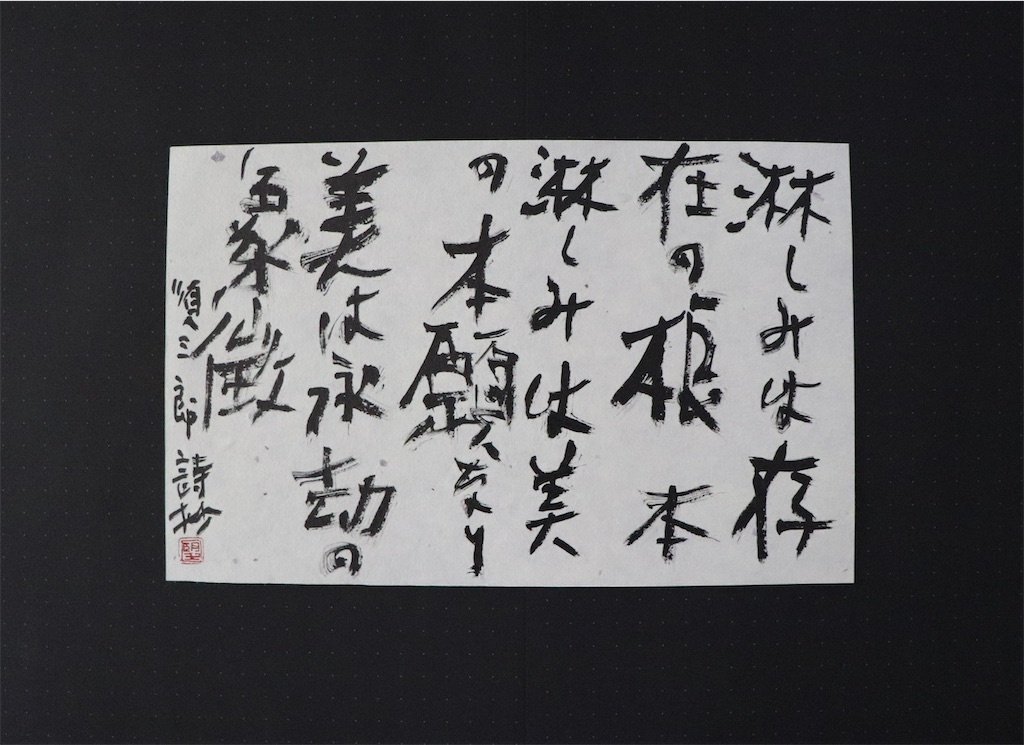 淋しみは存
在の根本
淋しみは美
の本願なり
美は永劫の
象徴
順三郎詩抄
聖